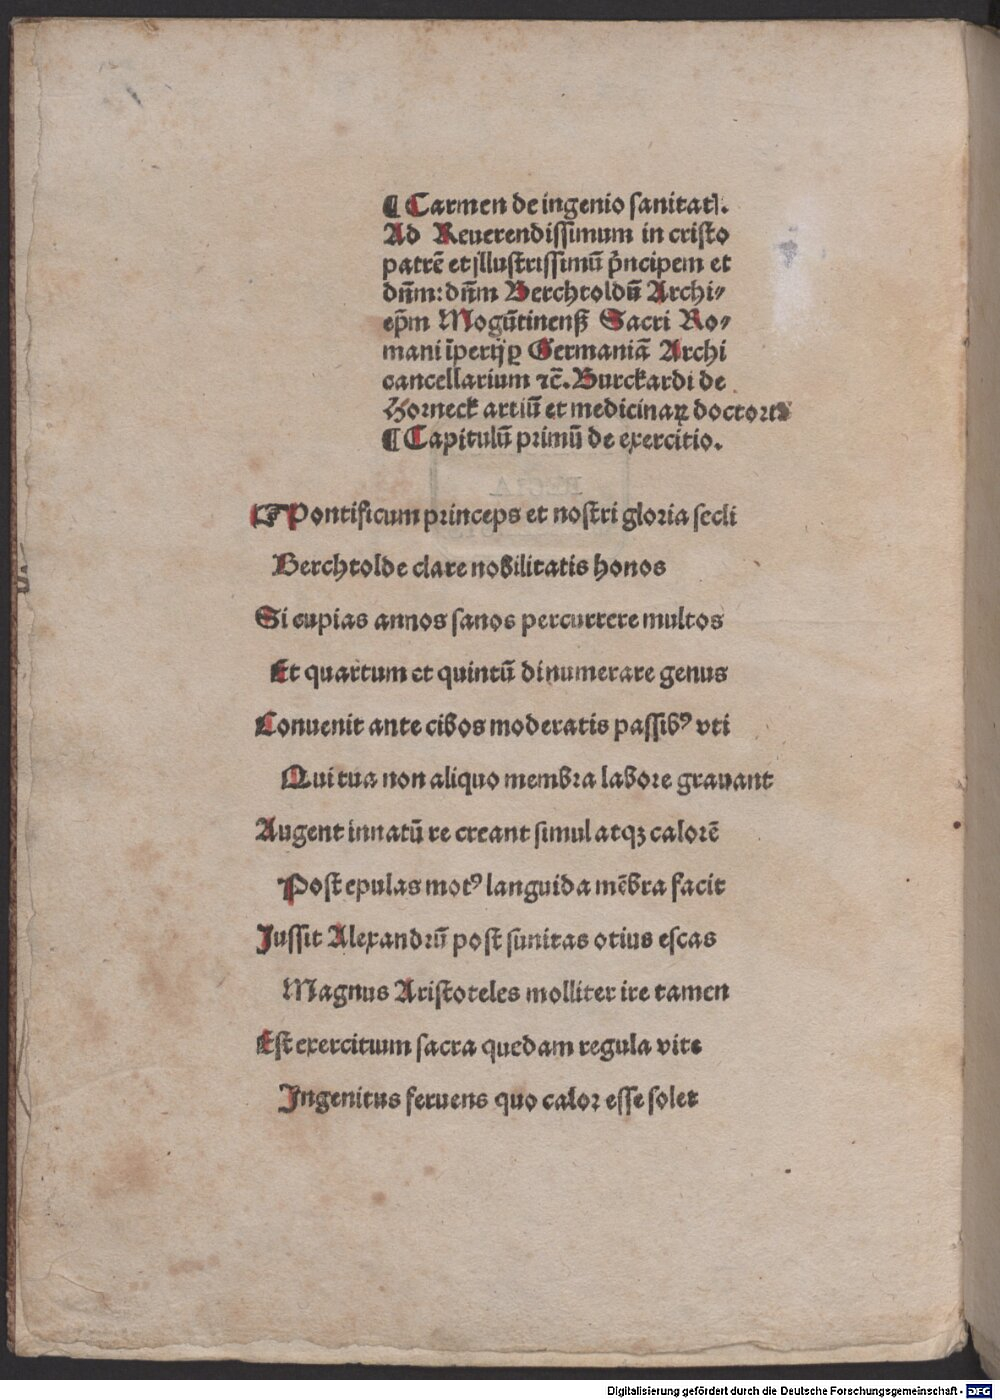 ¶ Carmen de ingenio sanitatꝭ.
Ad Reuerendissimum in cristo
patrē et jllustrissimū p̄ncipem et
dn̄m: dn̄m Berchtoldū Archi⸗
ep̄m Mogūtinenß Sacri Ro⸗
mani īperij ꝑ Germaniā Archi
cancellarium ⁊c̄. Burckardi de
Horneck artiū et medicinaꝝ doctoris
¶ Capitulū primū de exercitio.
☞ Pontificum princeps et nostri gloria secli
Berchtolde clare nobilitatis honos
Si cupias annos sanos percurrere multos
Et quartum et quintū dinumerare genus
Conuenit ante cibos moderatis passibꝰ vti
Qui tua non aliquo membra labore grauant
Augent innatū re creant simul atqꝫ calorē
Post epulas motꝰ languida mēbra facit
Jussit Alexandrū post sumtas otius escas
Magnus Aristoteles molliter ire tamen
Est exercituum sacra quedam regula vite
Ingenitus feruens quo calor esse solet
Digitalisierung gefördert durch die Deutsche Forschungsgemeinschaft - DFG